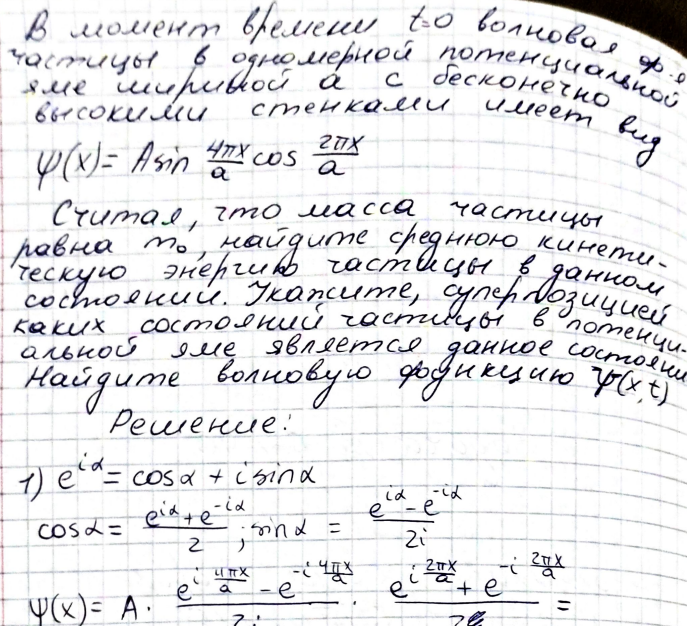 В момент времени t=0 волновая ф-я
частицы в одномерной потенциальной
яме шириной a с бесконечно
высокими стенками имеет вид
ψ(x)= A sin 4πx/a cos 2πx/a
Считая, что масса частицы
равна m₀, найдите среднюю кинети-
ческую энергию частицы в данном
состоянии. Укажите, суперпозицией
каких состояний частицы в потенци-
альной яме является данное состояни
Найдите волновую функцию Ψ(x,t)
Решение:
1) e^{iα} = cosα + i sinα
cosα = (e^{iα} + e^{-iα})/2 ; sinα = (e^{iα} - e^{-iα})/2i
ψ(x)= A · (e^{i 4πx/a} - e^{-i 4πx/a})/2i · (e^{i 2πx/a} + e^{-i 2πx/a})/2 =